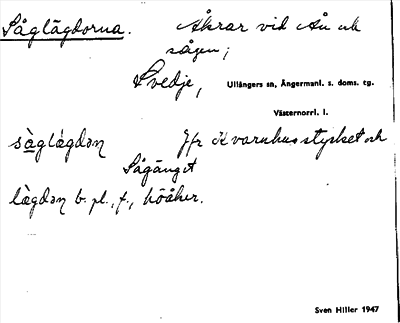 Såglägdorna. Åkrar vid Ån och
sågen;
Svedje, Ullångers sn, Ångermanl. s. doms. tg.
Västernorrl. l.
sàglágdən Jfr Kvarnhusstycket och
Sågänget
làgdən b. pl., f., höåker.
Sven Hiller 1947